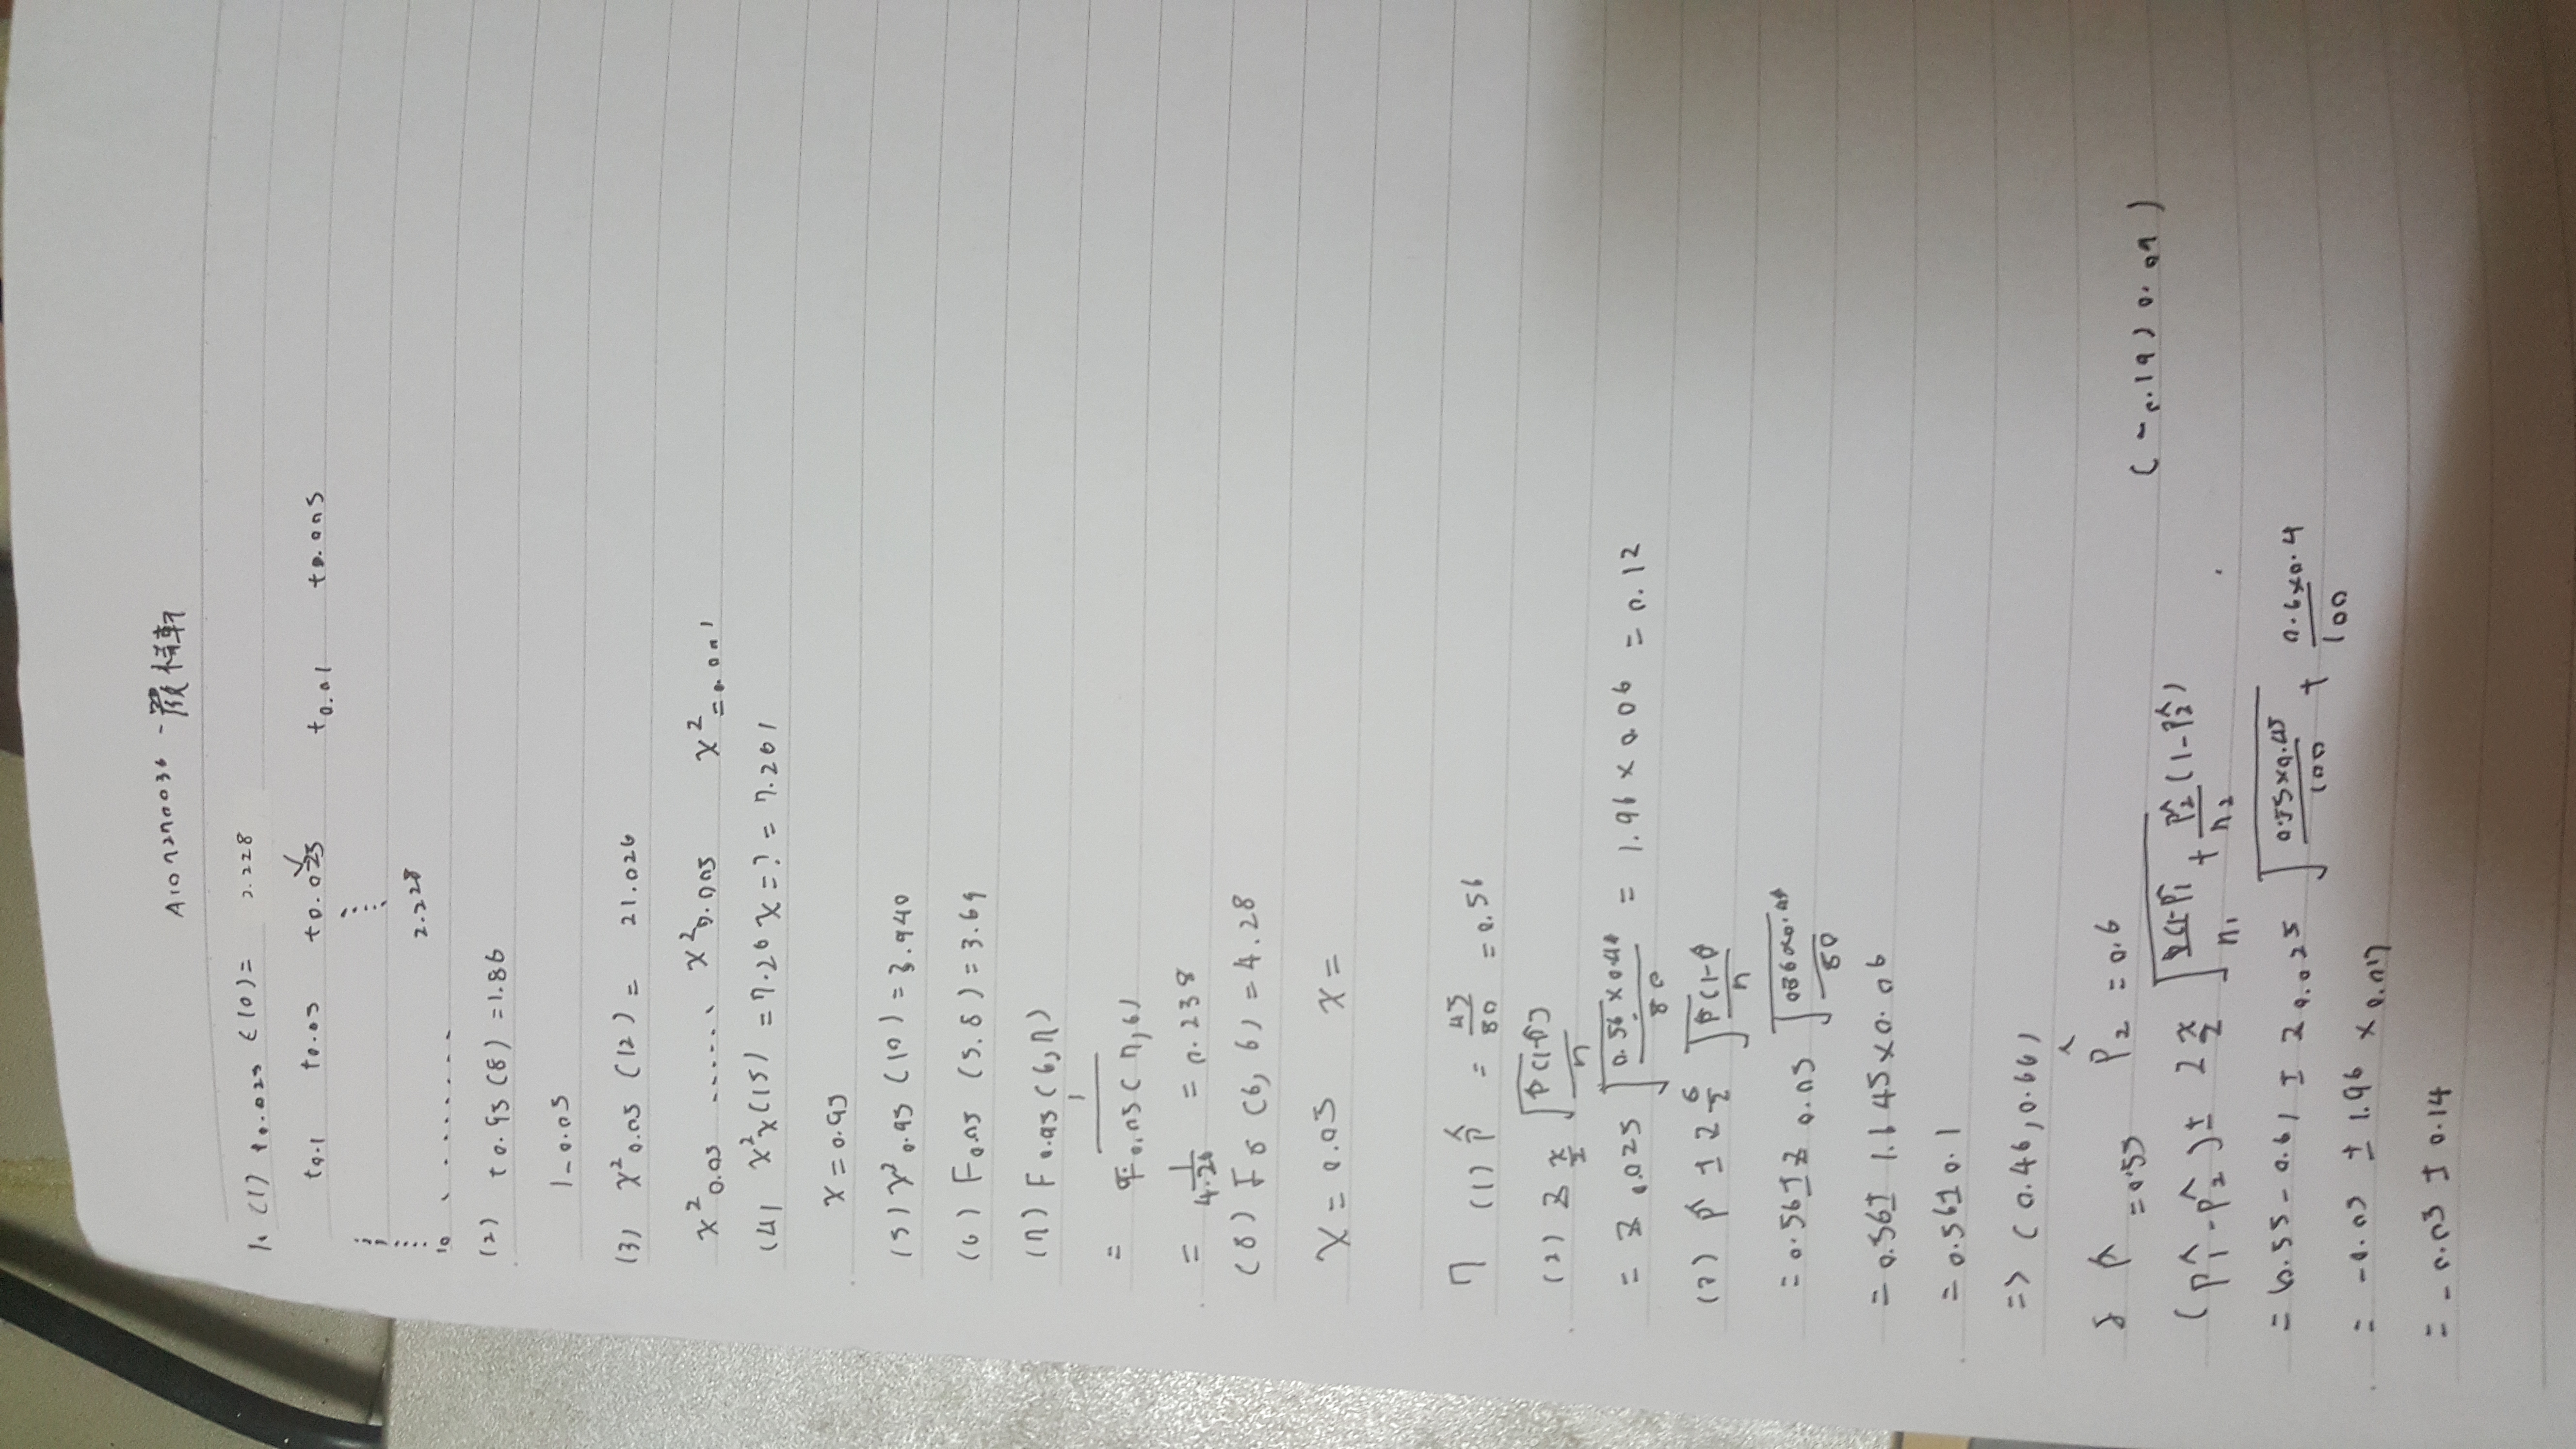 A107270036 - 嚴椅軒
1. (1) t0.025 (10) = 2.228
t0.1 t0.05 t0.025 t0.01 t0.005
2.228
10 . . . . . . . .
(2) t0.95 (8) = 1.86
1-0.05
(3) χ²0.05 (12) = 21.026
χ²0.05 ...... χ²0.005 χ²=0.001
(4) χ²x(15) = 7.26 x=? = 7.261
x = 0.95
(5) χ²0.95 (10) = 3.940
(6) F0.05 (5.8) = 3.69
(7) F0.95 (6,7)
= 1/F0.05(7,6)
= 1/4.20 = 0.238
(8) Fσ (6, 6) = 4.28
x = 0.05 x =
7 (1) p̂ = 45/80 = 0.56
(2) Z x/2 √p̂(1-p̂)/n
= Z0.025 √0.56×0.44/80 = 1.96 × 0.06 = 0.12
(3) p̂ ± Z σ/2 √p̂(1-p̂/n
= 0.56 ± Z0.05 √0.56×0.44/80
= 0.56 ± 1.645×0.06
= 0.56 ± 0.1
=> (0.46, 0.66)
8 p̂ = 0.55 p̂2 = 0.6
(-0.19, 0.09)
(p̂1 - p̂2) ± Z x/2 √p̂1(1-p̂1/n1 + p̂2(1-p̂2)/n2
= (0.55 - 0.6) ± Z0.025 √0.55×0.45/100 + 0.6×0.4/100
= -0.05 ± 1.96 × 0.07
= -0.05 ± 0.14